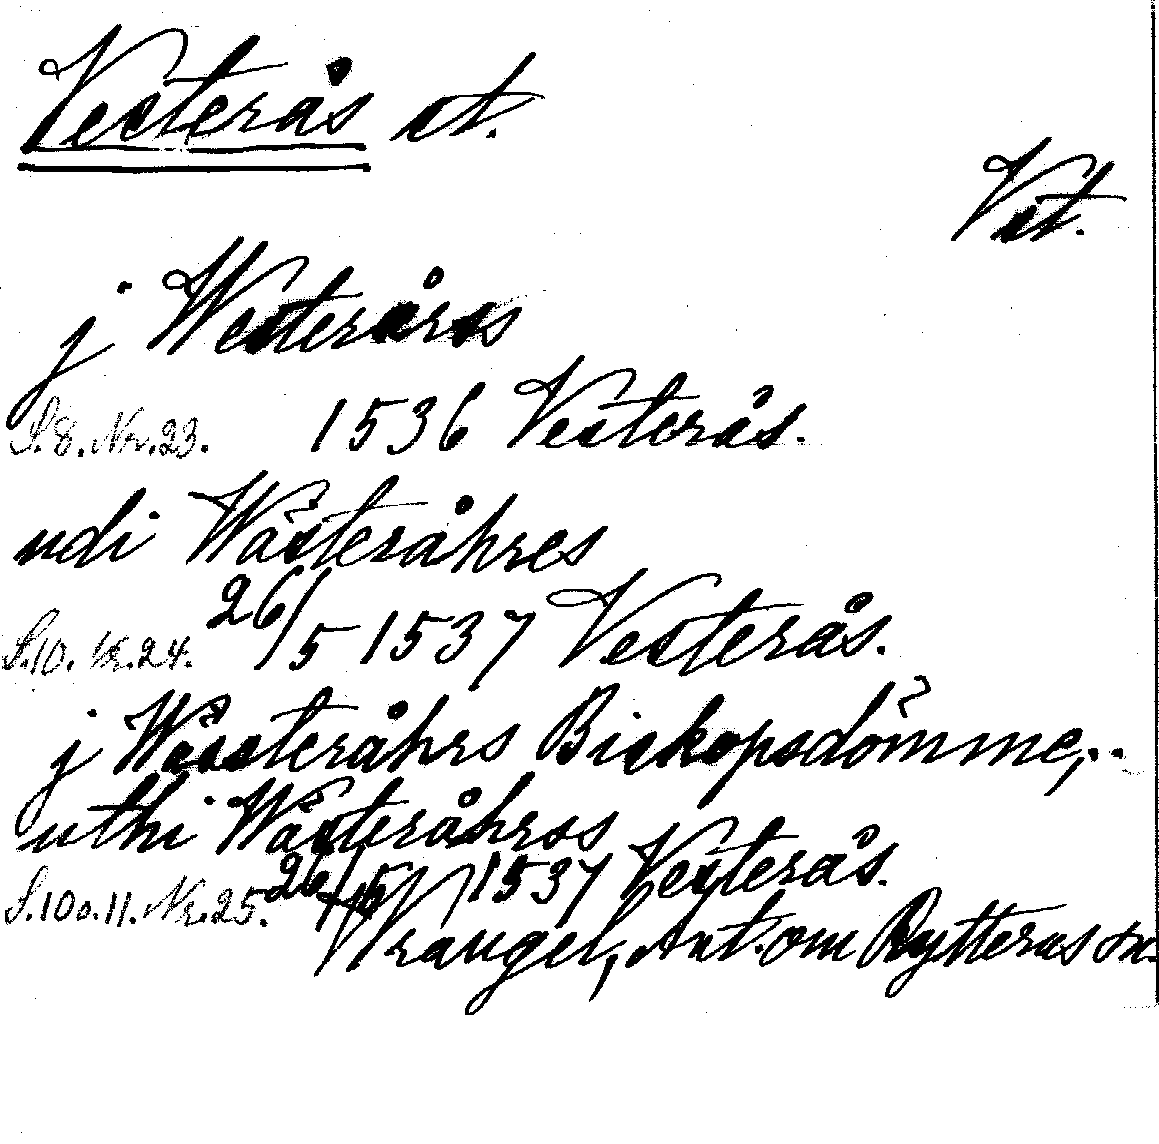 Vesterås st.
Vst.
j Westerårss
S.8. Nr.23. 1536 Vesterås.
udi Wästeråhres
S.10. Nr.24. 26/5 1537 Vesterås.
j Wässteråhrs Biskopsdömme,..
uthi Wästeråhrss
S.10 o.11. Nr.25. 26/5 1537 Vesterås.
Wrangel, Ant. om Rytteras sn.